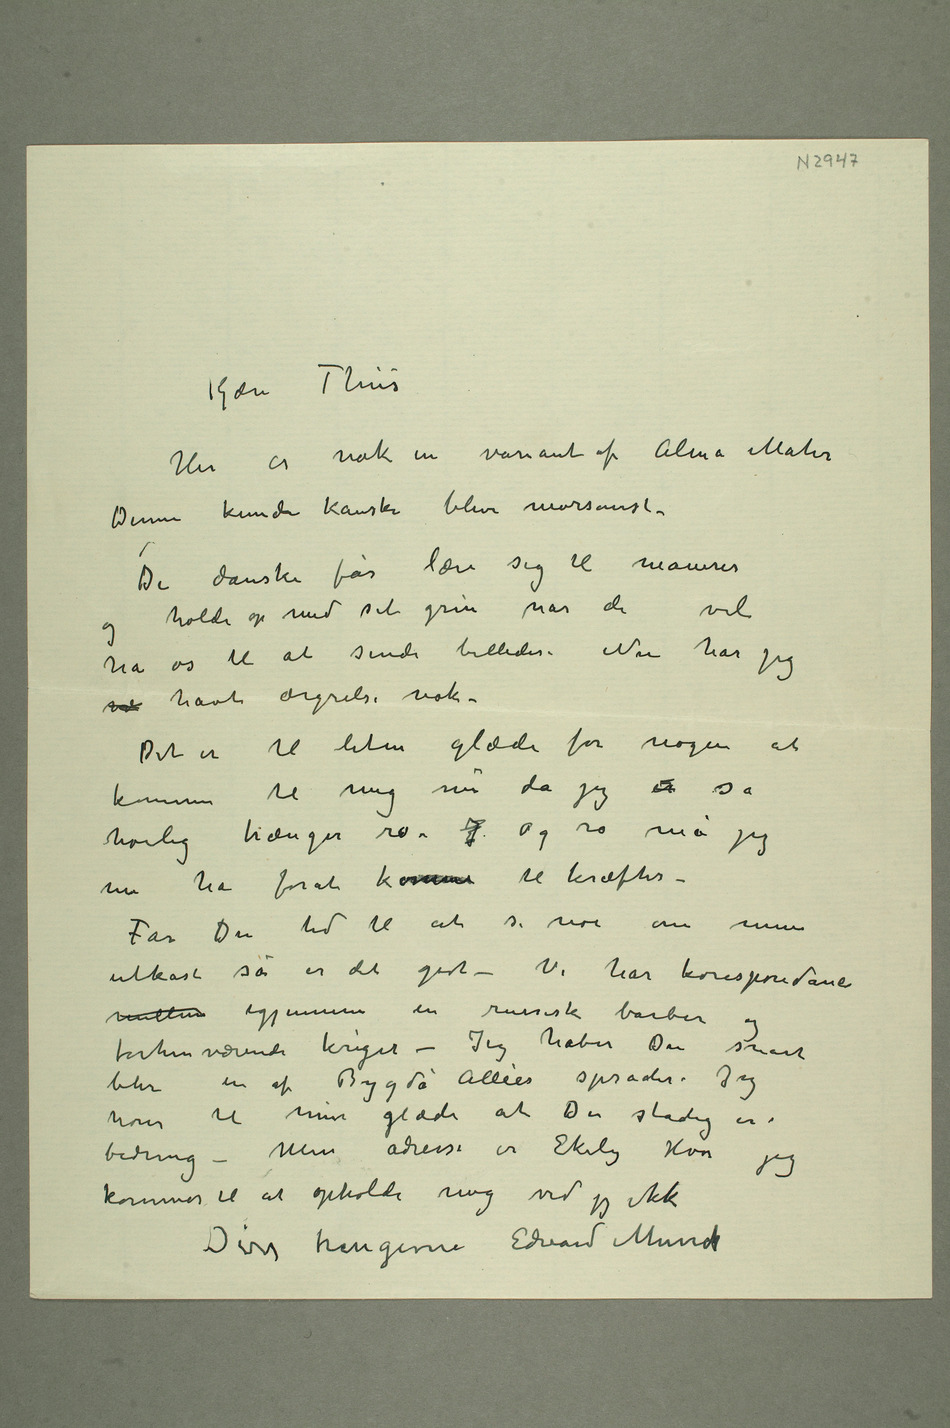 N 2947
Kjære Thiis
Her er nok en variant af Alma Mater
Denne kunde kanske blive morsomst –
De danske får lære sig til manerer
og holde op med sit grin når de vil
ha os til at sende billeder. Nu har jeg
havt ærgrelse nok –
Det er til liten glæde for nogen at
komme til mig nu da jeg er så
hårlig trænger ro. og ro må jeg
nu ha forat komme til kræfter –
Får Du tid til at se noe om mine
utkast så er det godt – Vi har korespondance
mellem igjennem en russisk barber og
forhenværende kriger – Jeg håber Du snart
blir en af Bygdö Allées sprader. Jeg
hører til min glæde at Du stadig er i
bedring – Min adresse er Ekely Hvor jeg
kommer til at opholde mig ved jeg ikke
Din hengivne Edvard Munch